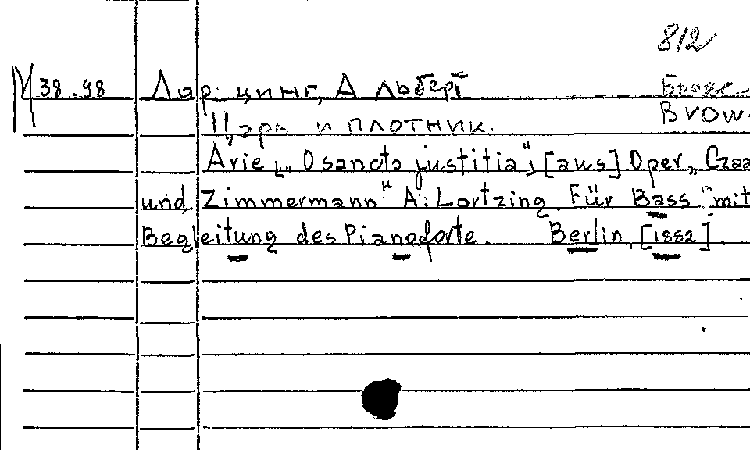 812
М 38.98 Лорцинг, Альберт
BROW
Царь и плотник.
Arie „O sancta justitia“, [aus] Oper „Czaa
und Zimmermann“ A. Lortzing. Für Bass mit
Begleitung des Pianoforte. Berlin, [1882].